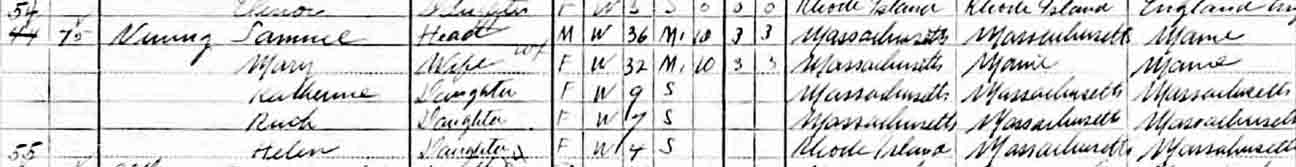 54 Elenor Daughter F W 5 S 0 0 0 Rhode Island Rhode Island England
44 75 Vining Samuel Head M W 36 M1 10 3 3 Massachusetts Massachusetts Maine
Mary Wife F W 32 M1 10 3 3 Massachusetts Maine Maine
Katherine Daughter F W 9 S Massachusetts Massachusetts Massachusetts
Ruth Daughter F W 7 S Massachusetts Massachusetts Massachusetts
55 Helen Daughter F W 4 S Rhode Island Massachusetts Massachusetts